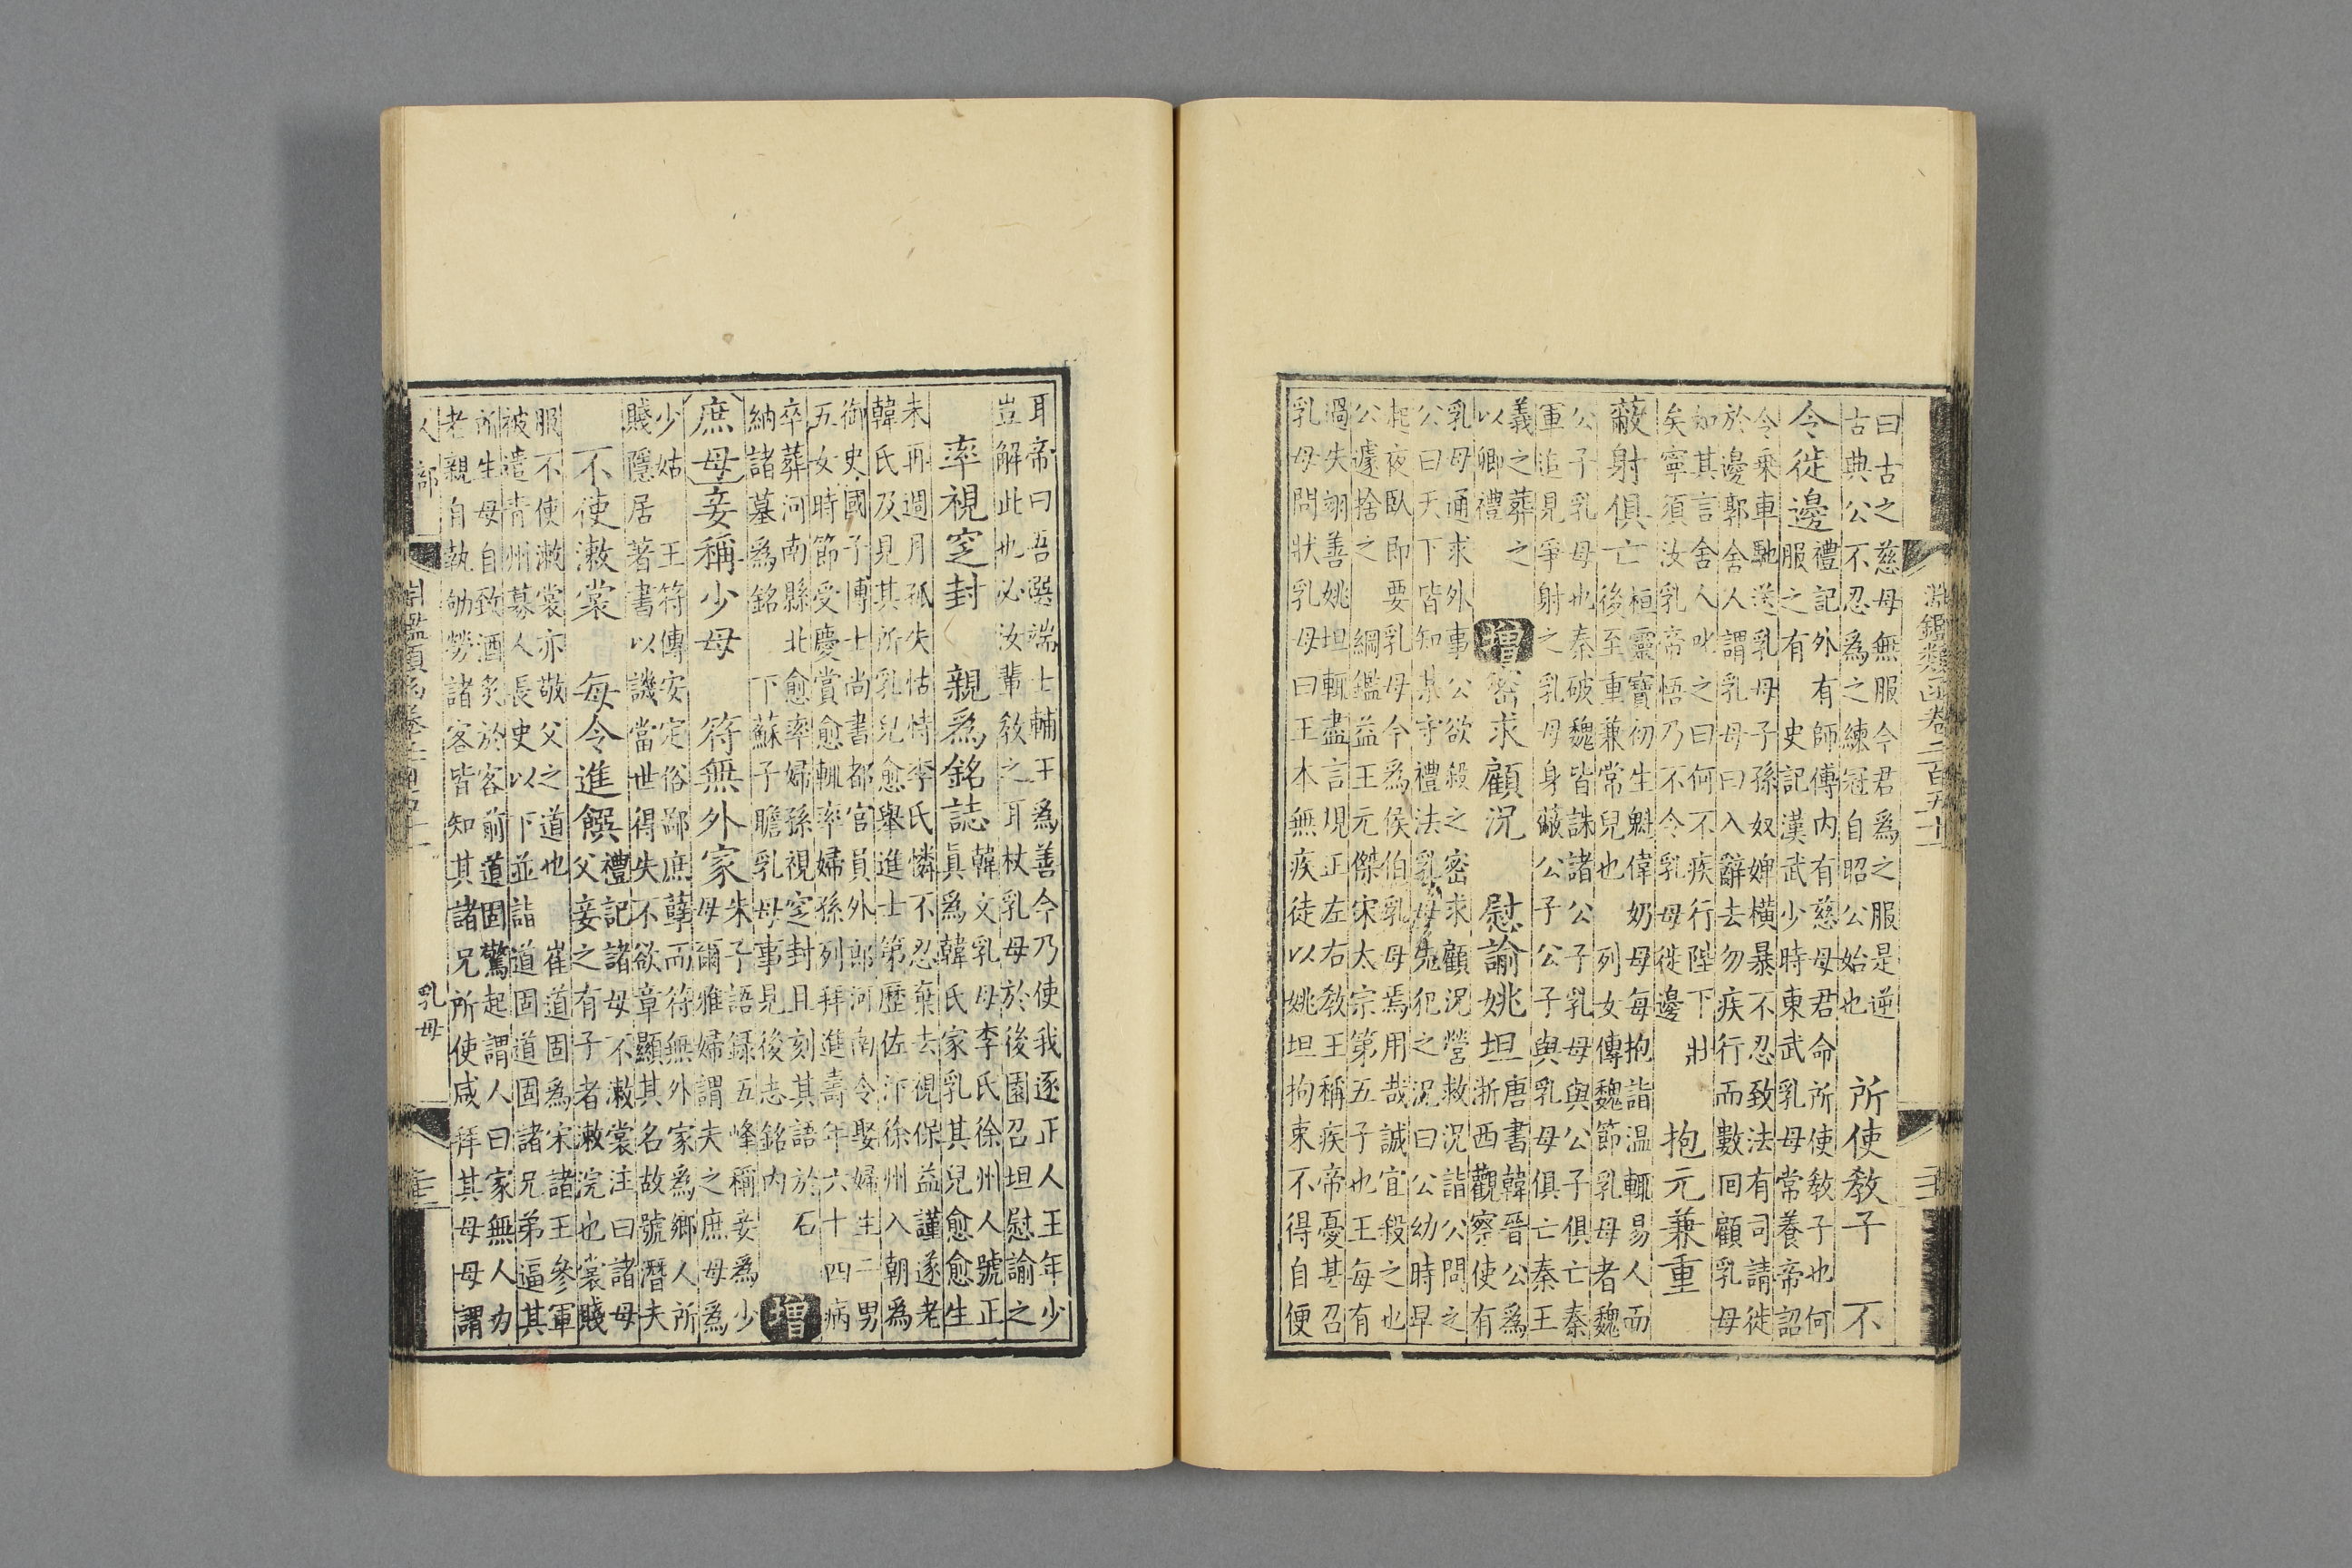 淵鑑類函卷二百五十
曰古之慈母無服今君爲之服是逆
古典公不忍爲之練冠自昭公始也
所使教子　不
令徙邊
禮記外有師傅内有慈母君命所使教子也何
服之有　史記漢武少時東武乳母常養帝詔
令乘車馳送乳母子孫奴婢橫暴不忍致法有司請徙
於邊郭舍人謂乳母曰入辭去勿疾行而數回顧乳母
如其言舍人叱之曰何不疾行陛下壯
矣寧須汝乳帝悟乃不令乳母徙邊
抱元兼重
蔽射俱亡
桓靈寶初生魁偉奶母每抱詣温輒易人而
後至重兼常兒也　列女傳魏節乳母者魏
公子乳母也秦破魏皆誅諸公子乳母與公子俱亡秦
軍追見爭射之乳母身蔽公子公子與乳母俱亡秦王
義之葬之
以卿禮
增密求顧況　慰諭姚坦
唐書韓晉公爲
浙西觀察使有
乳母通求外事公欲殺之密求顧況營救況詣公問之
公曰天下皆知某守禮法乳母先犯之況曰公幼時早
起夜臥即要乳母今爲侯伯乳母焉用哉誠宜殺之也
公遽捨之　綱鑑益王元傑宋太宗第五子也王每有
過失翊善姚坦輒盡言規正左右教王稱疾帝憂甚召
乳母問狀乳母曰王本無疾徒以姚坦拘束不得自便
耳帝曰吾選端士輔王爲善今乃使我逐正人王年少
豈解此也必汝輩教之耳杖乳母於後園召坦慰諭之
率視窆封　親爲銘誌
韓文乳母李氏徐州人號正
眞爲韓氏家乳其兒愈愈生
未再週月孤失怙恃李氏憐不忍棄去視保益謹遂老
韓氏及見其所乳兒愈舉進士第歷佐汴徐州入朝爲
御史國子博士尚書都官員外郎河南令娶婦生二男
五女時節受慶賞愈輒率婦孫列拜進壽年六十四病
卒葬河南縣北愈率婦孫視窆封且刻其語於石
納諸墓爲銘　下蘇子瞻乳母事見後志銘内
增
庶母　妾稱少母　符無外家
朱子語録五峰稱妾爲少
母爾雅婦謂夫之庶母爲
少姑　王符傳安定俗鄙庶孽而符無外家爲鄉人所
賤隱居著書以譏當世得失不欲章顯其名故號潛夫
不使漱裳　每令進饌
禮記諸母不漱裳注曰諸母
父妾之有子者漱浣也裳賤
服不使漱裳亦敬父之道也　崔道固爲宋諸王參軍
被遣青州募人長史以下並詣道固道固諸兄弟逼其
所生母自致酒炙於客前道固驚起謂人曰家無人力
老親自執劬勞諸客皆知其諸兄所使咸拜其母母謂
人部
乳母